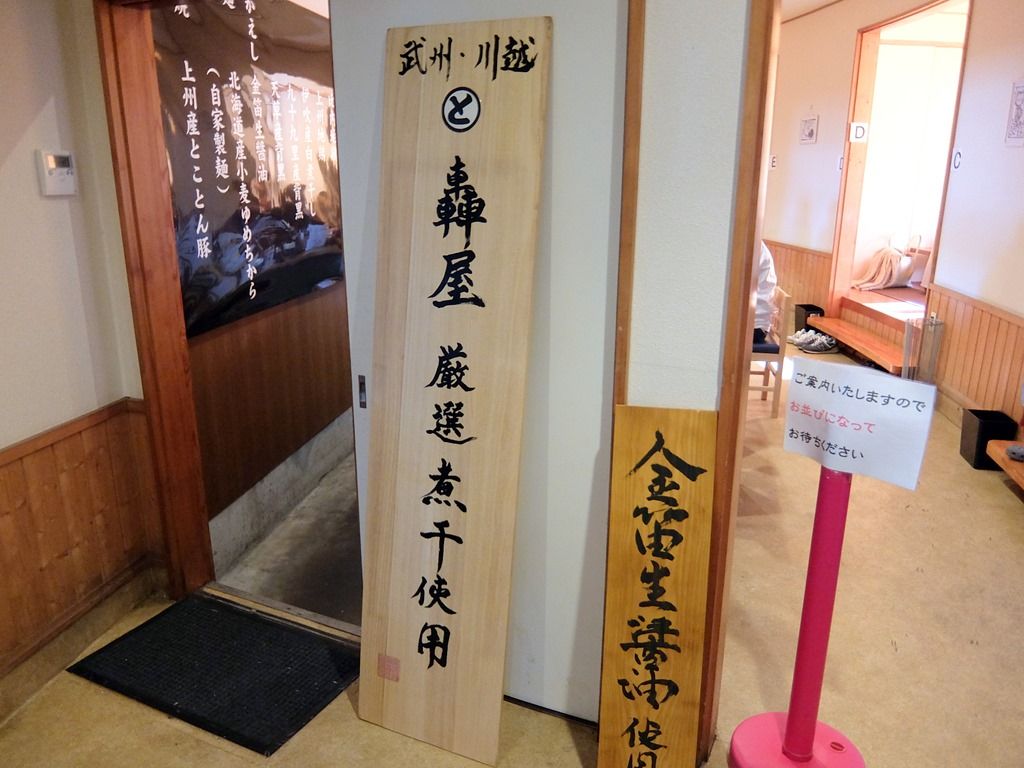 武州・川越
と
轟屋 厳選煮干使用
金笛生醤油使用
ご案内いたしますので
お並びになって
お待ちください
かえし 金笛生醤油
北海道産小麦ゆめちから
(自家製麺)
上州産とことん豚
D
C
E